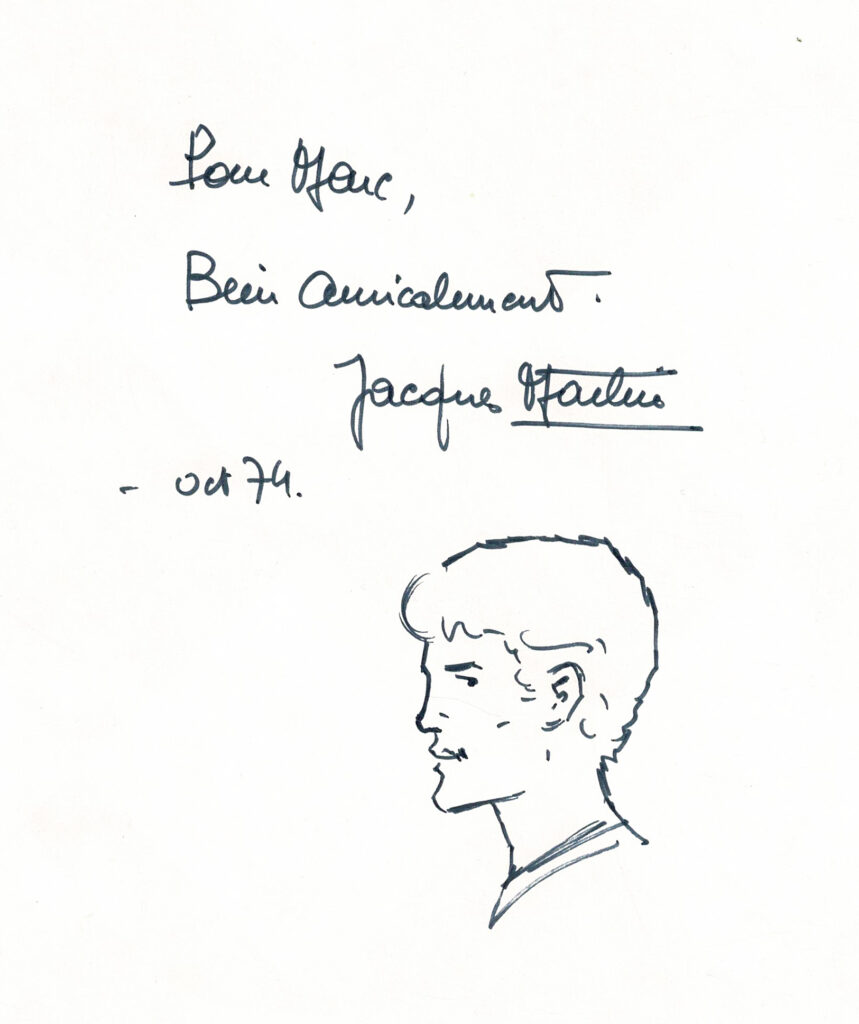 Pour Marc,
Bien amicalement.
Jacques Martin
- oct 74.